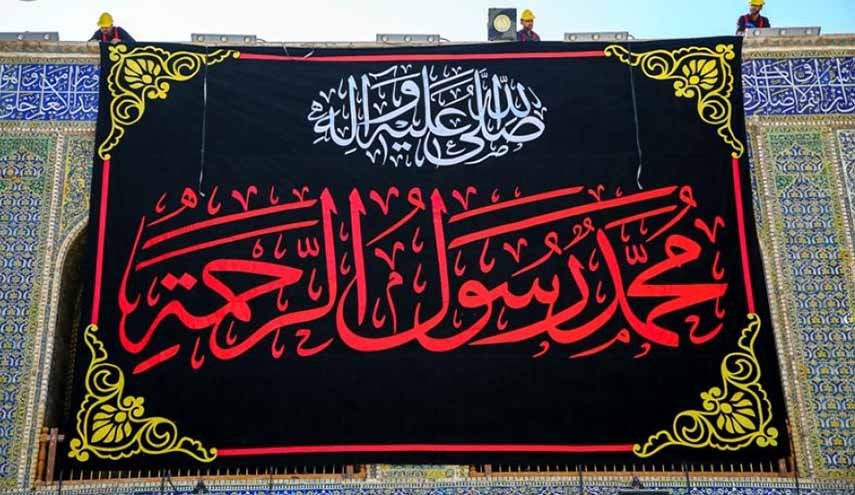 صلى الله عليه وآله
محمد رسول الرحمة